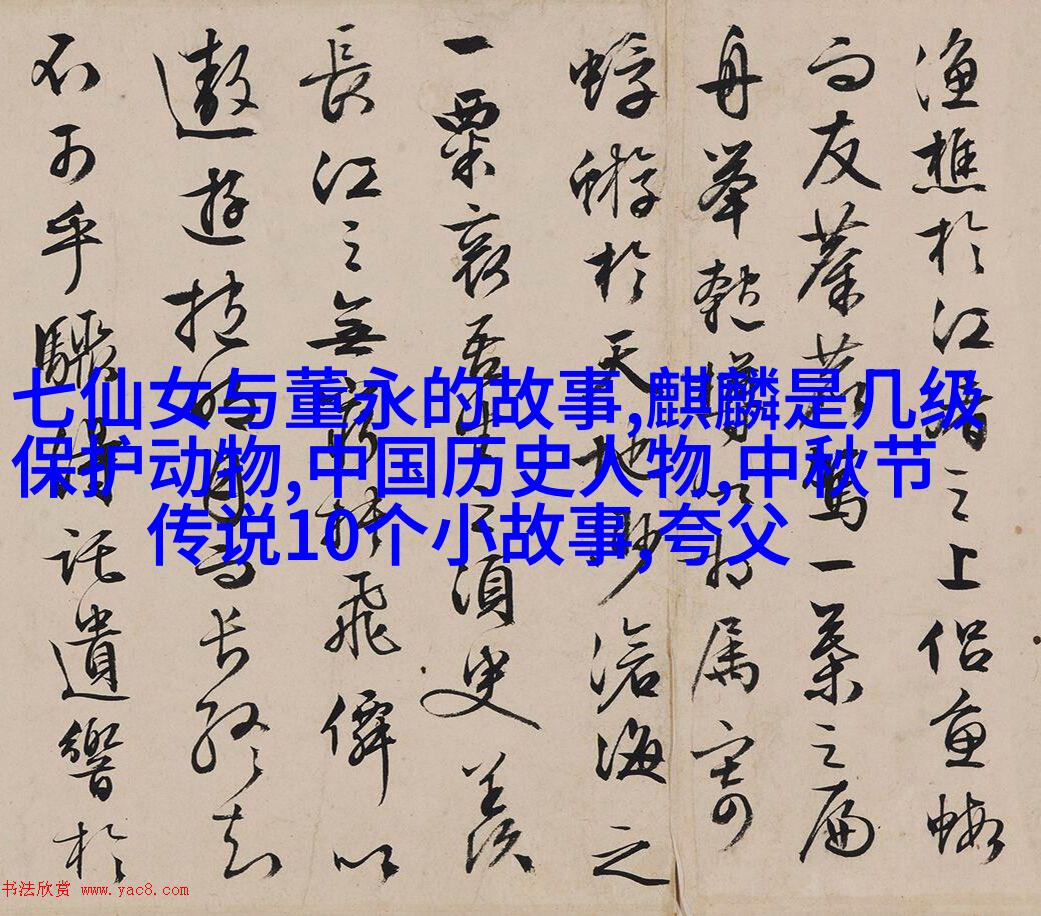 漁樵於江渚之上侶魚蝦
而友麋鹿駕一葉之扁
舟舉匏樽以相属寄
蜉蝣於天地渺滄海之
一粟哀吾生之須臾羨
長江之無窮挾飛僊以
遨遊抱明月而長終知
不可乎驟得託遺響於
七仙女与董永的故事,麒麟是几级
保护动物,中国历史人物,中秋节
传说10个小故事,夸父
书法欣赏 www.yac8.com